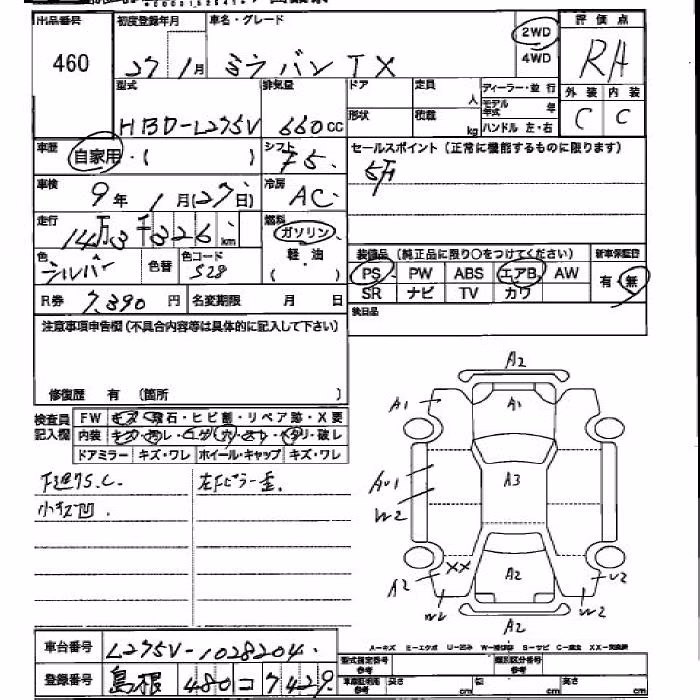 出品番号 460
初度登録年月 27 1月
車名・グレード ミラバン TX
2WD
4WD
評価点 RA
外装 内装
C C
型式 HBD-L275V
排気量 660 cc
ドア
形状
定員 人
積載 kg
ディーラー・並行
モデル年式 年
ハンドル 左・右
車歴 自家用・( )
シフト F5
冷房 AC
車検 9年 1月(27日)
走行 14万3千326km
燃料 ガソリン
軽・油
( )
色 シルバー
色替
色コード S28
R券 7,390円
名変期限 月 日
セールスポイント(正常に機能するものに限ります)
5万
装備品(純正品に限り○をつけてください)
PS PW ABS エアB AW
SR ナビ TV カワ
新車保証書
有・無
後日品
注意事項申告欄(不具合内容等は具体的に記入して下さい)
修復歴 有 (箇所 )
検査員記入欄
FW キズ・飛石・ヒビ割・リペア跡・X要
内装 キズ・
ドアミラー キズ・ワレ ホイール・キャップ キズ・ワレ
下廻りS.C.
小キズ凹
左Fピラー歪
A2
A1
A1
A3
W2
XX
A2
A2
W2
A2
U2
W2
車台番号 L275V-1028204
登録番号 島根 480 コ 7429
型式指定番号
類別区分番号
長さ cm
幅 cm
高さ cm